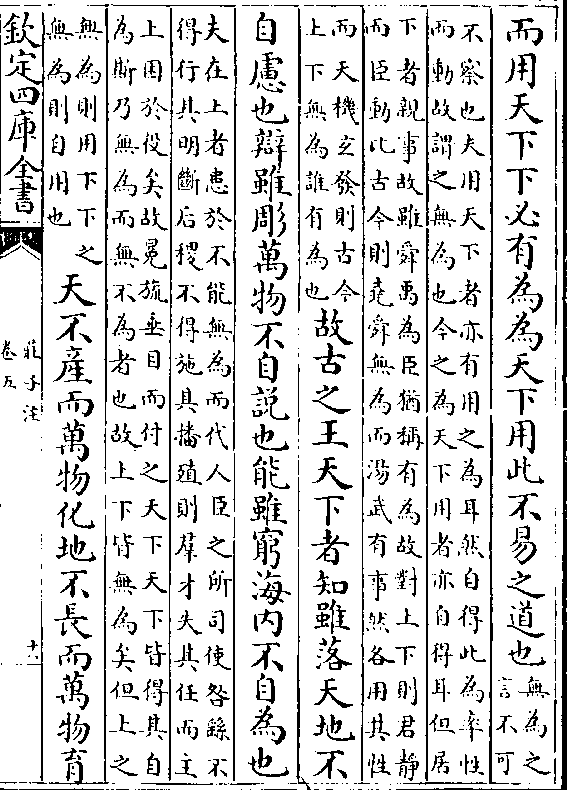 而用天下下必有為為天下用此不易之道也
無為之
言不可
不察也夫用天下者亦有用之為耳然自得此為率性
而動故謂之無為也今之為天下用者亦自得耳但居
下者親事故雖舜禹為臣猶稱有為故對上下則君靜
而臣動比古今則堯舜無為而湯武有事然各用其性
而天機玄發則古今
上下無為誰有為也
故古之王天下者知雖落天地不
自慮也辯雖彫萬物不自說也能雖窮海内不自為也
夫在上者患於不能無為而代人臣之所司使咎繇不
得行其明斷后稷不得施其播殖則羣才失其任而主
上困於役矣故冕旒垂目而付之天下天下皆得其自
為斯乃無為而無不為者也故上下皆無為矣但上之
無為則用下下之
無為則自用也
天不產而萬物化地不長而萬物育
欽定四庫全書
莊子注
卷五